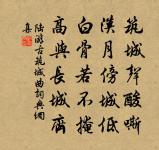 筑城聲酸嘶
漢月傍城低
白骨若不掩
高與長城齊
陸游古筑城曲詞典網